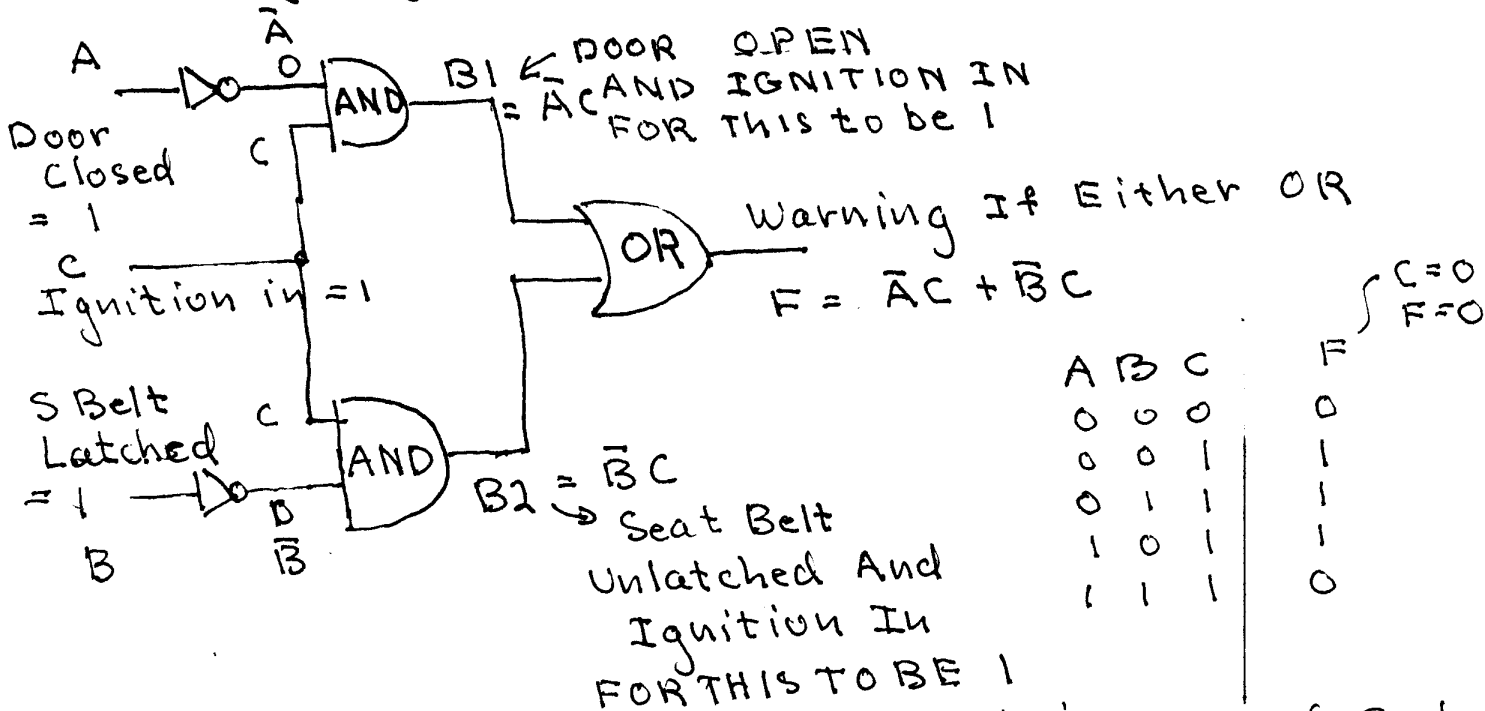 A
Ā
O
AND
B1 ← DOOR OPEN
= ĀC AND IGNITION IN
FOR THIS to be 1
C
Door
Closed
= 1
C
Ignition in = 1
OR
Warning If Either OR
F = ĀC + B̄C
C = 0
F = 0
S Belt
Latched
= 1
B
C
B̄
AND
B2 = B̄C
→ Seat Belt
Unlatched And
Ignition In
FOR THIS TO BE 1
A B C F
0 0 0 0
0 0 1 1
0 1 1 1
1 0 1 1
1 1 1 0